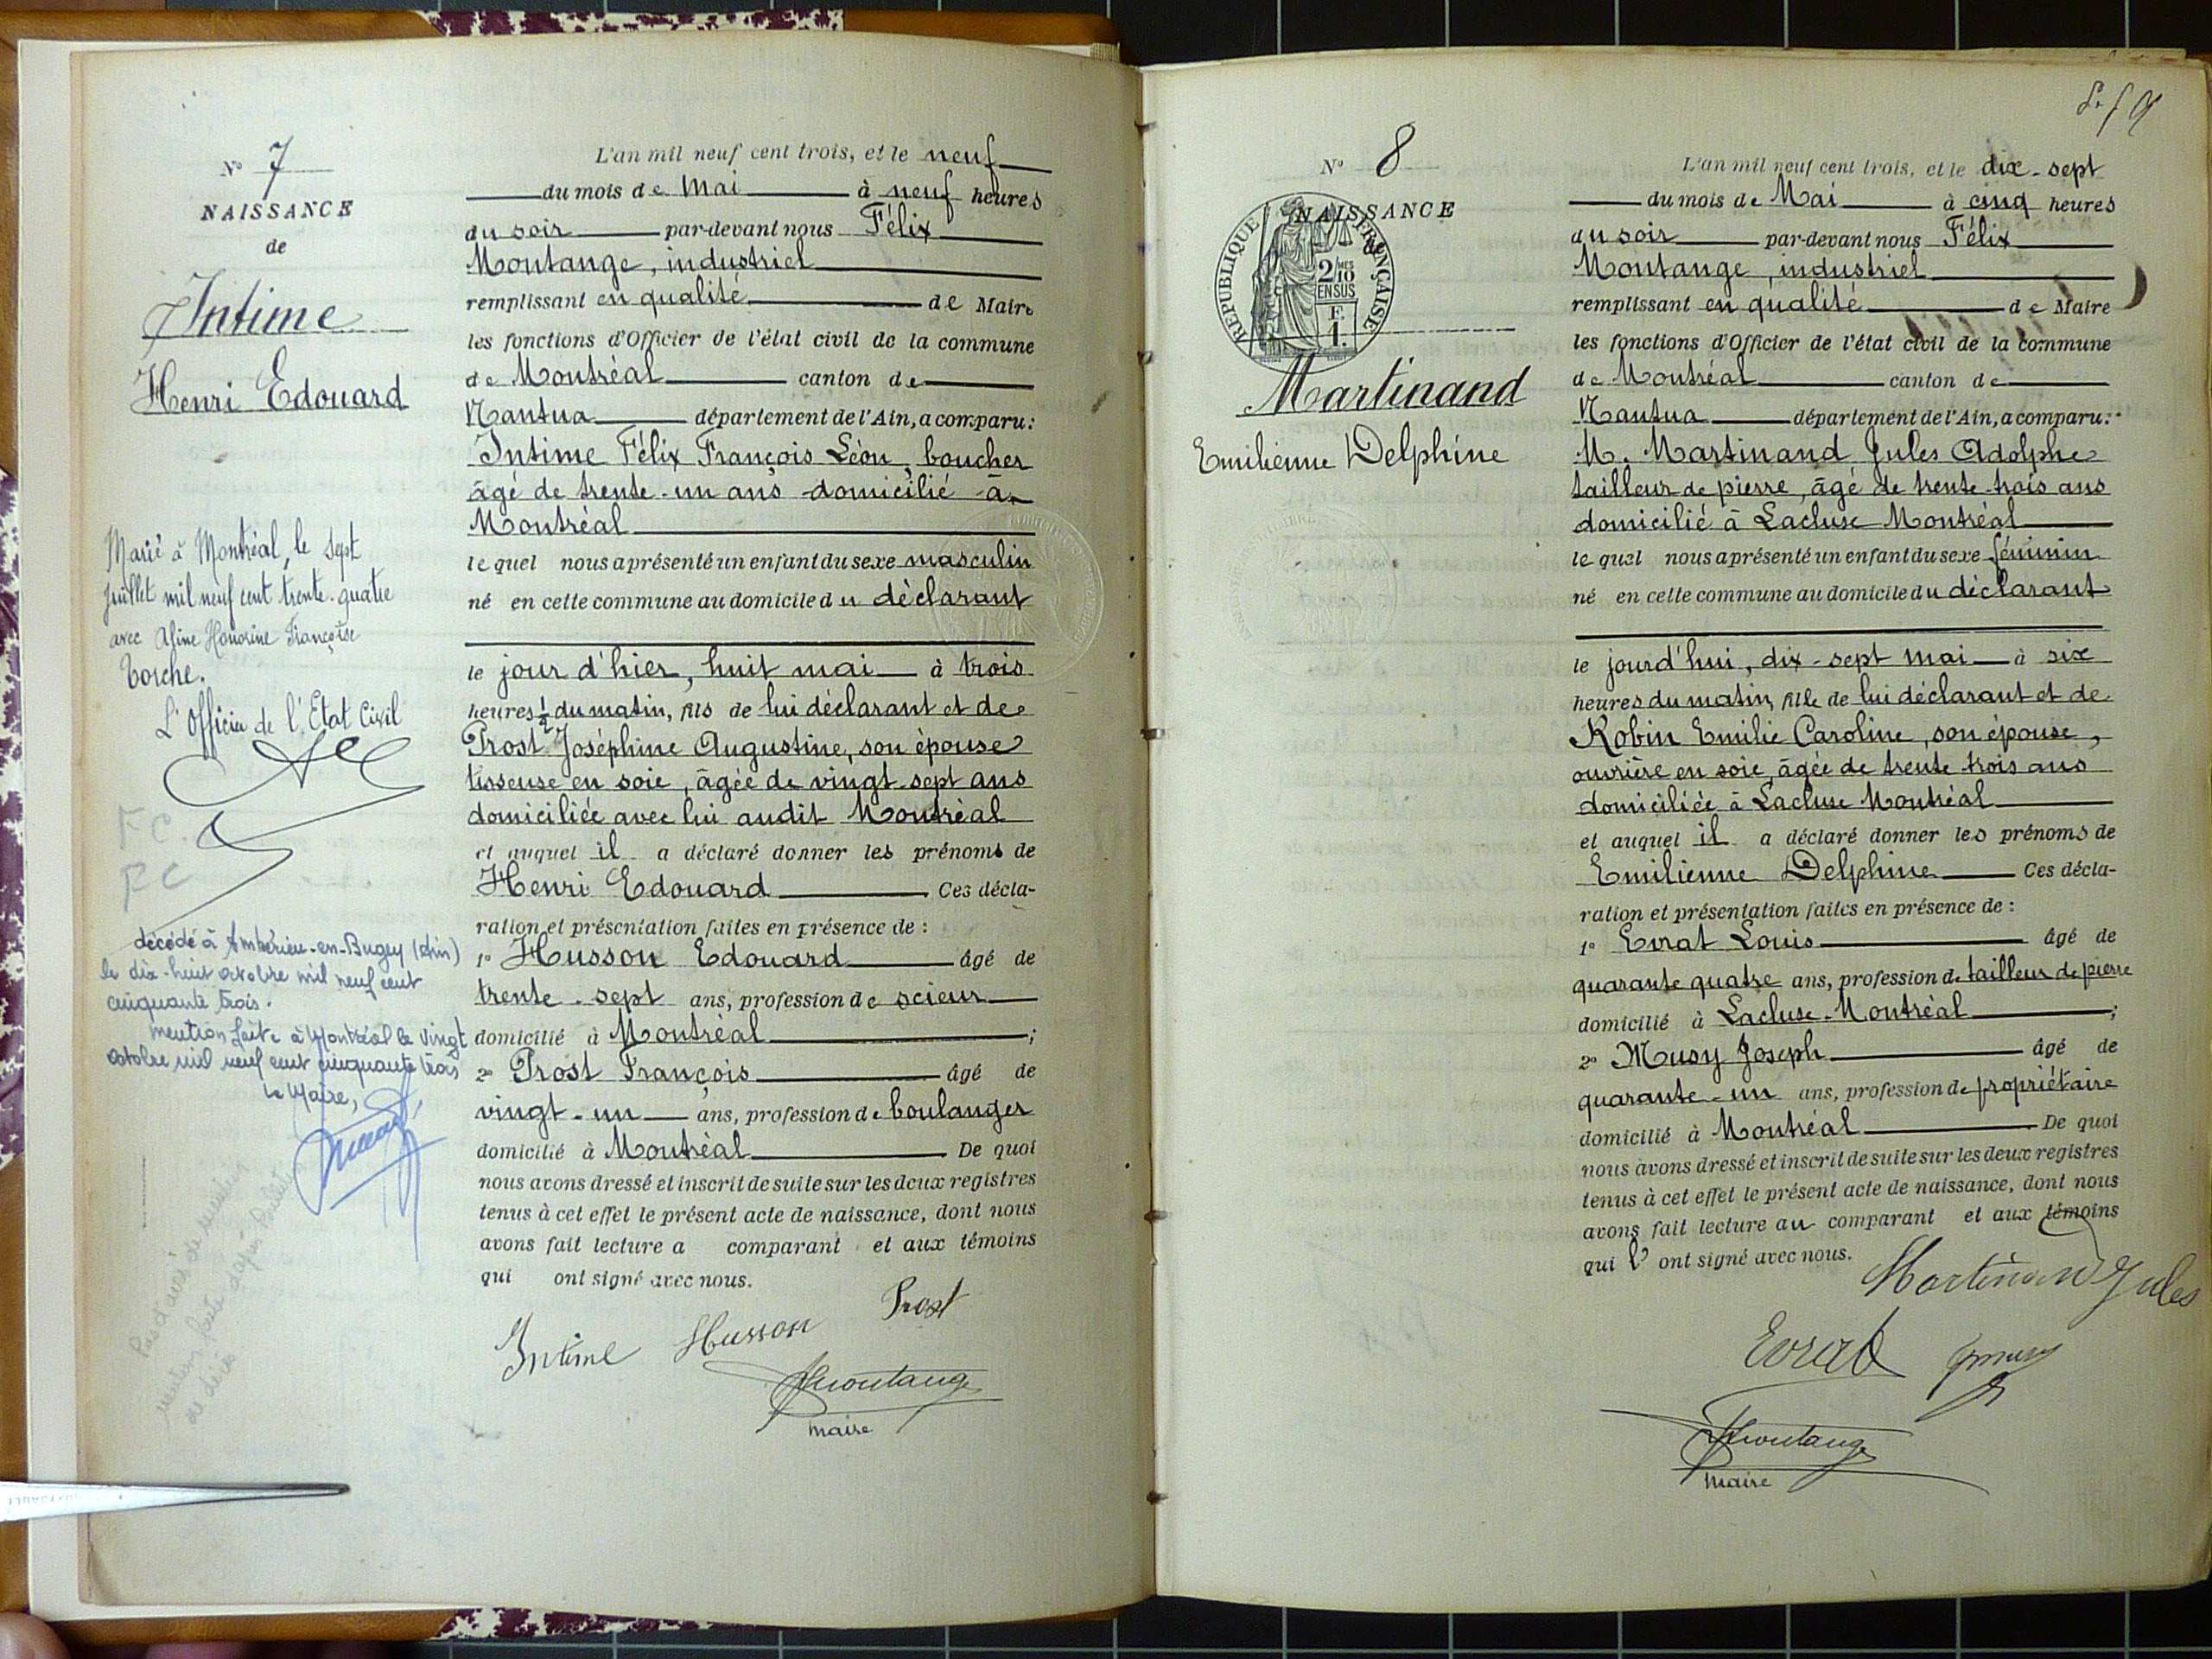 N° 7
NAISSANCE
de
Intime
Henri Edouard
Marié à Montréal, le sept
juillet mil neuf cent trente-quatre
avec Aline Honorine Françoise
Torche.
L'Officier de l'Etat Civil
F C.
P C
décédé à Ambérieu-en-Bugey (Ain)
le dix-huit octobre mil neuf cent
cinquante trois.
mention faite à Montréal le vingt
octobre mil neuf cent cinquante trois
Le Maire,
Pas d'avis de mention
mention faite d'après bulletin
de décès
L'an mil neuf cent trois, et le neuf
du mois de Mai à neuf heures
du soir par-devant nous Félix
Montange, industriel
remplissant en qualité de Maire
les fonctions d'Officier de l'état civil de la commune
de Montréal canton de
Nantua département de l'Ain, a comparu:
Intime Félix François Léon, boucher
âgé de trente-un ans domicilié à
Montréal
lequel nous a présenté un enfant du sexe masculin
né en cette commune au domicile du déclarant
le jour d'hier, huit mai à trois
heures ½ du matin, fils de lui déclarant et de
Prost Joséphine Augustine, son épouse
tisseuse en soie, âgée de vingt-sept ans
domiciliée avec lui audit Montréal
et auquel il a déclaré donner les prénoms de
Henri Edouard Ces décla-
ration et présentation faites en présence de :
1° Husson Edouard âgé de
trente-sept ans, profession de scieur
domicilié à Montréal ;
2° Prost François âgé de
vingt-un ans, profession de boulanger
domicilié à Montréal De quoi
nous avons dressé et inscrit de suite sur les deux registres
tenus à cet effet le présent acte de naissance, dont nous
avons fait lecture a comparant et aux témoins
qui ont signé avec nous.
Intime Husson Prost
Montange
maire
N° 8
NAISSANCE
de
REPUBLIQUE FRANÇAISE
2/10MES
EN SUS
F.
1.
Martinand
Emilienne Delphine
L'an mil neuf cent trois, et le dix-sept
du mois de Mai à cinq heures
du soir par-devant nous Félix
Montange, industriel
remplissant en qualité de Maire
les fonctions d'Officier de l'état civil de la commune
de Montréal canton de
Nantua département de l'Ain, a comparu:
M. Martinand Jules Adolphe
tailleur de pierre, âgé de trente-trois ans
domicilié à Lacluse Montréal
lequel nous a présenté un enfant du sexe féminin
né en cette commune au domicile du déclarant
le jourd'hui, dix-sept mai à six
heures du matin, fille de lui déclarant et de
Robin Emilie Caroline, son épouse,
ouvrière en soie, âgée de trente trois ans
domiciliée à Lacluse Montréal
et auquel il a déclaré donner les prénoms de
Emilienne Delphine Ces décla-
ration et présentation faites en présence de :
1° Evrat Louis âgé de
quarante quatre ans, profession de tailleur de pierre
domicilié à Lacluse-Montréal ;
2° Musy Joseph âgé de
quarante-un ans, profession de propriétaire
domicilié à Montréal De quoi
nous avons dressé et inscrit de suite sur les deux registres
tenus à cet effet le présent acte de naissance, dont nous
avons fait lecture au comparant et aux témoins
qui l' ont signé avec nous.
Martinand Jules
Evrat Jmusy
Montange
maire